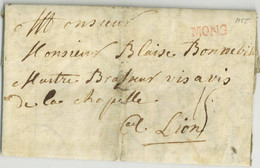 Monsieur
MONS
Monsieur Blaise Bonnebill
Maitre Brasseur vis a vis
de la Chapelle
15
A Lion